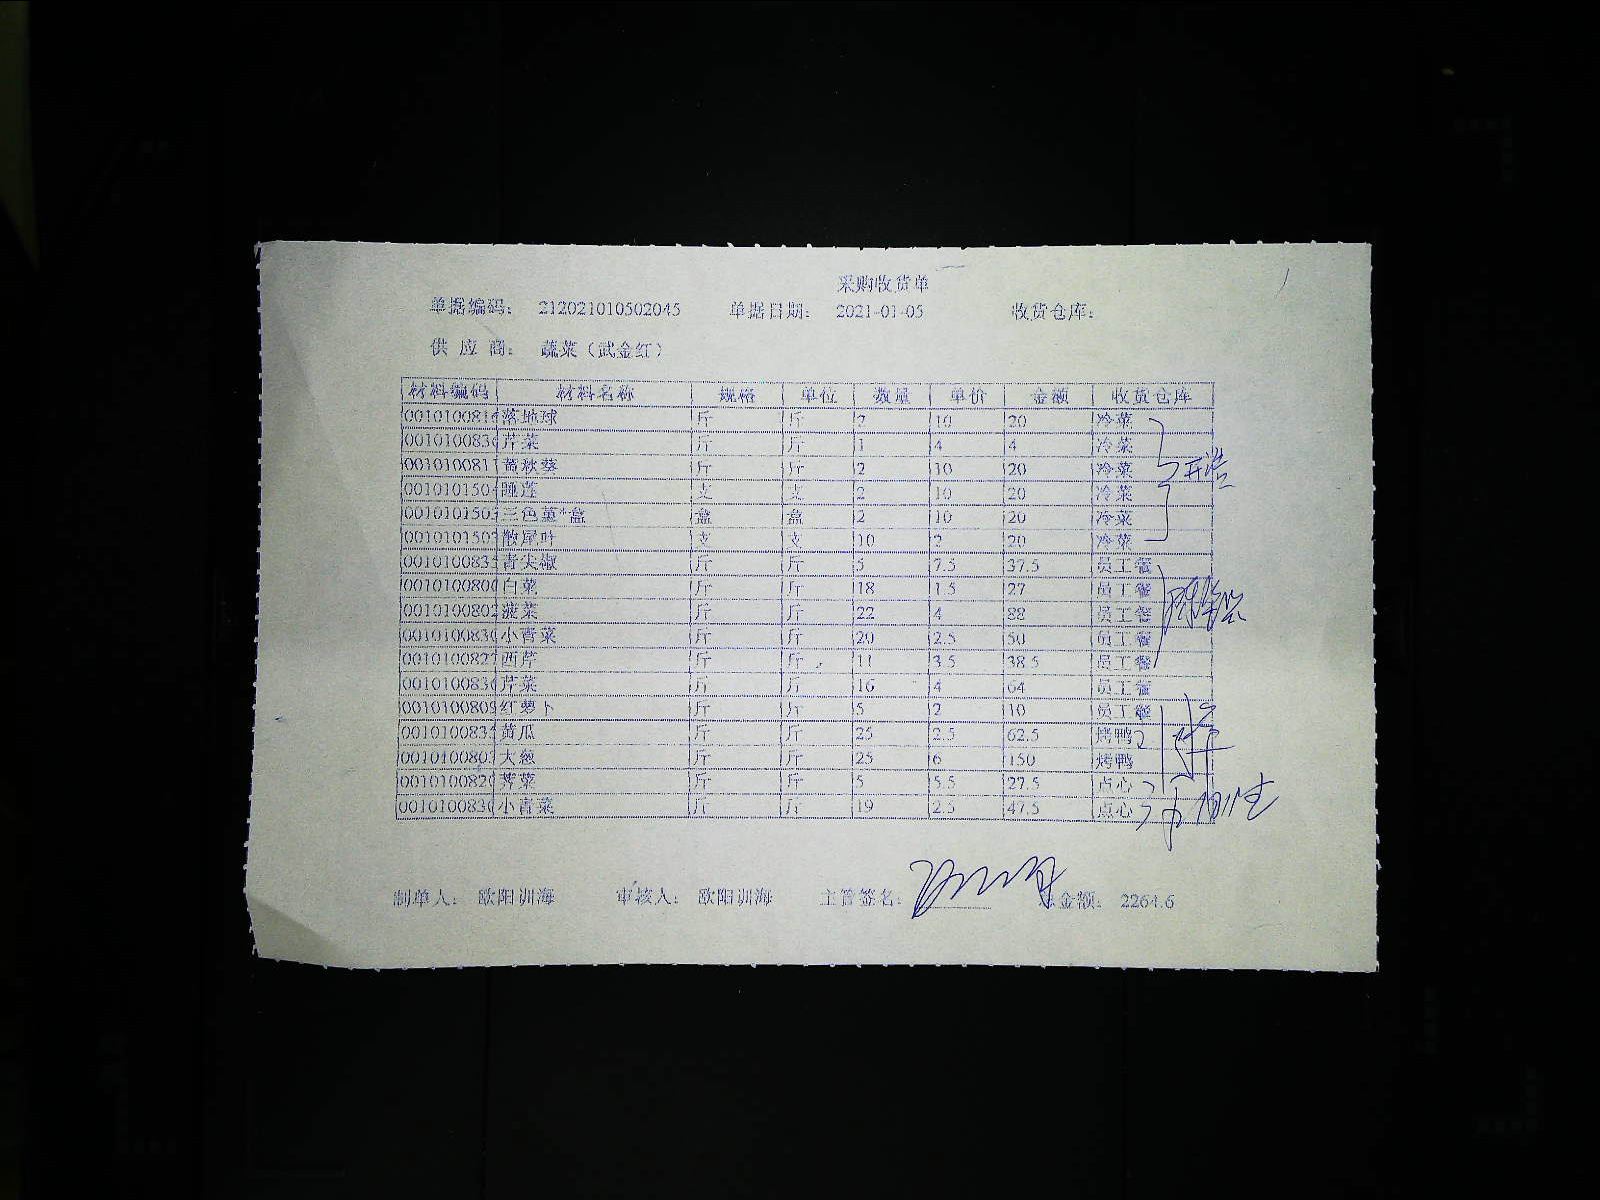 采购收货单
单据编码： 212021010502045 单据日期： 2021-01-05 收货仓库：
供 应 商： 蔬菜（武金红）
材料编码 材料名称 规格 单位 数量 单价 金额 收货仓库
001010081 落地球 斤 斤 2 10 20 冷菜
001010083 芹菜 斤 斤 1 4 4 冷菜
001010081 黄秋葵 斤 斤 2 10 20 冷菜
001010150 睡莲 支 支 2 10 20 冷菜
001010150 三色堇*盒 盒 盒 2 10 20 冷菜
001010150 散尾叶 支 支 10 2 20 冷菜
001010083 青尖椒 斤 斤 5 7.5 37.5 员工餐
001010080 白菜 斤 斤 18 1.5 27 员工餐
001010080 菠菜 斤 斤 22 4 88 员工餐
001010083 小青菜 斤 斤 20 2.5 50 员工餐
001010082 西芹 斤 斤 11 3.5 38.5 员工餐
001010083 芹菜 斤 斤 16 4 64 员工餐
001010080 红萝卜 斤 斤 5 2 10 员工餐
001010083 黄瓜 斤 斤 25 2.5 62.5 烤鸭
001010080 大葱 斤 斤 25 6 150 烤鸭
001010082 荠菜 斤 斤 5 5.5 27.5 点心
001010083 小青菜 斤 斤 19 2.5 47.5 点心
制单人： 欧阳训海 审核人： 欧阳训海 主管签名： 总金额： 2264.6